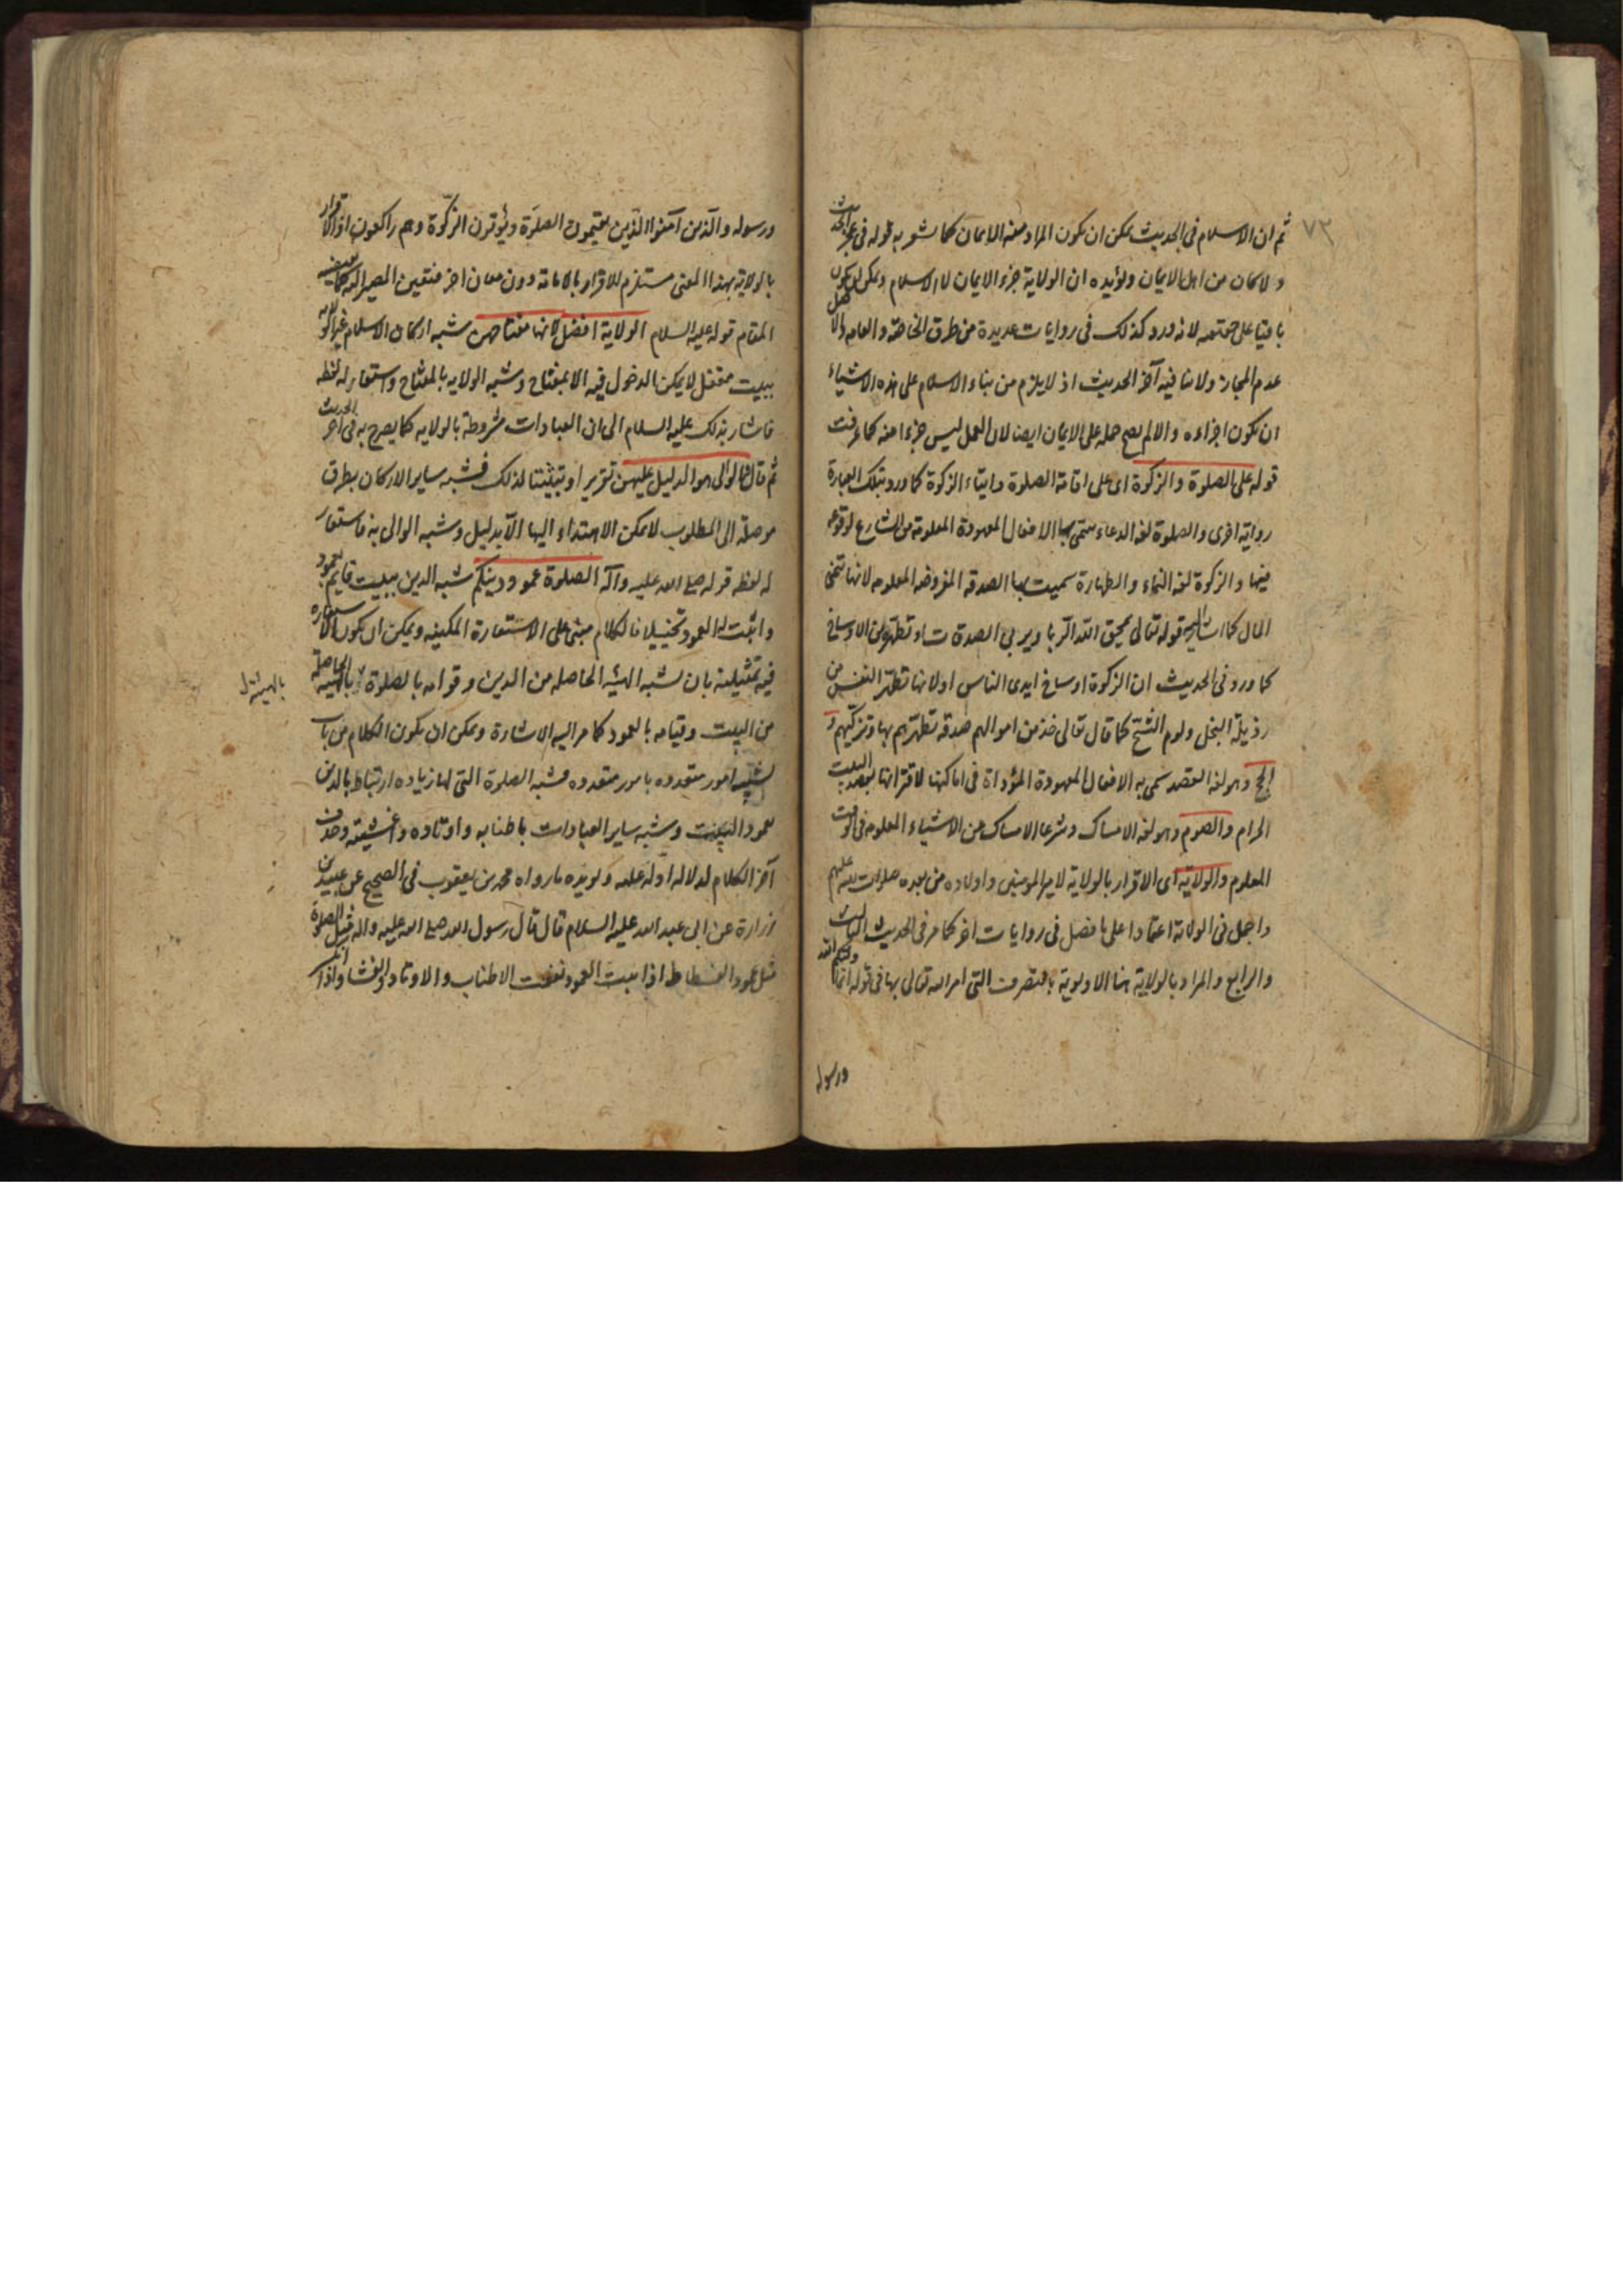 ٧٣
ثم ان الاسلام فى الحديث يمكن ان يكون المراد منه الايمان كما يشعر به قوله فى عجز الحديث
ولا كان من اهل الايمان ويؤيده ان الولاية جزء الايمان لا الاسلام ويمكن ان يكون
باقيا على حقيقته لانه ورد كذلك فى روايات عديدة من طرق الخاصة والعامه والاصل
عدم المجاز ولا ينافيه آخر الحديث اذ لا يلزم من بناء الاسلام على هذه الاشياء
ان يكون اجزاءه والا لم يصح حمله على الايمان ايضا لان العمل ليس جزءا منه كما عرفت
قوله على الصلوة والزكوة اى على اقامة الصلوة وايتاء الزكوة كما ورد بتلك العبارة
رواية اخرى والصلوة لغه الدعاء سمى بها الافعال المعهودة المعلومة من الشارع لوقوعه
فيها والزكوة لغه النماء والطهارة سميت بها الصدقه المفروضه المعلومه لانها تنمى
المال كما اشار اليه قوله تعالى يمحق الله الربا ويربى الصدقات او تطهره من الاوساخ
كما ورد فى الحديث ان الزكوة اوساخ ايدى الناس او لانها تطهر النفس من
رذيلة البخل ولوم الشح كما قال تعالى خذ من اموالهم صدقه تطهرهم بها وتزكيهم و
الحج وهو لغه القصد سمى به الافعال المعهودة المؤداة فى اماكنها لاقترانها بقصد البيت
الحرام والصوم وهو لغه الامساك وشرعا الامساك عن الاشياء المعلومه فى الوقت
المعلوم والولاية اى الاقرار بالولاية لامير المومنين واولاده من بعده صلوات الله عليهم
واجمل فى الولاية اعتمادا على ما فصل فى روايات اخر كما مر فى الحديث الثالث
والرابع والمراد بالولاية هنا الاولوية بالتصرف التى امر الله تعالى بها فى قوله انما وليكم الله
ورسوله
ورسوله والذين آمنوا الذين يقيمون الصلوة ويؤتون الزكوة وهم راكعون اذ الاقرار
بالولاية بهذا المعنى مستلزم للاقرار بالامامة دون معان اخر فتعين المصير اليه كما يقتضيه
المقام قوله عليه السلام الولاية افضل لانها مفتاحهن شبه اركان الاسلام غير الولايه
ببيت مقفل لا يمكن الدخول فيه الا بمفتاح وشبه الولايه بالمفتاح واستعار له لفظه
فاشار بذلك عليه السلام الى ان العبادات مشروطة بالولايه كما يصرح به فى اخر الحديث
ثم قال والوالى هو الدليل عليهن تقريرا وتبثيتا لذلك فشبه ساير الاركان بطرق
موصلة الى المطلوب لا يمكن الاهتداء اليها الا بدليل وشبه الوالى به فاستعار
له لفظه قوله صلى الله عليه وآله الصلوة عمود دينكم شبه الدين ببيت قايم بعمود
واثبت له العمود تخييلا فالكلام مبنى على الاستعارة المكنيه ويمكن ان يكون الاستعاره
فيه تمثيلية بان شبه الهيئه الحاصله من الدين وقوامه بالصلوة بالهيئه الحاصلة
بالهيئة
من البيت وقيامه بالعمود كما مر اليه الاشارة ويمكن ان يكون الكلام من باب
تشبيه امور متعدده بامور متعدده فشبه الصلوة التى لها زياده ارتباط بالدين
بعمود البيت وشبه ساير العبادات باطنابه واوتاده واغشيته وحذف
آخر الكلام لدلاله اوله عليه ويؤيده ما رواه محمد بن يعقوب فى الصحيح عن عبيد بن
زرارة عن ابى عبد الله عليه السلام قال قال رسول الله صلى الله عليه واله مثل الصلوة
مثل عمود الفسطاط اذا ثبت العمود نفعت الاطناب والاوتاد والغشاء واذا انكسر